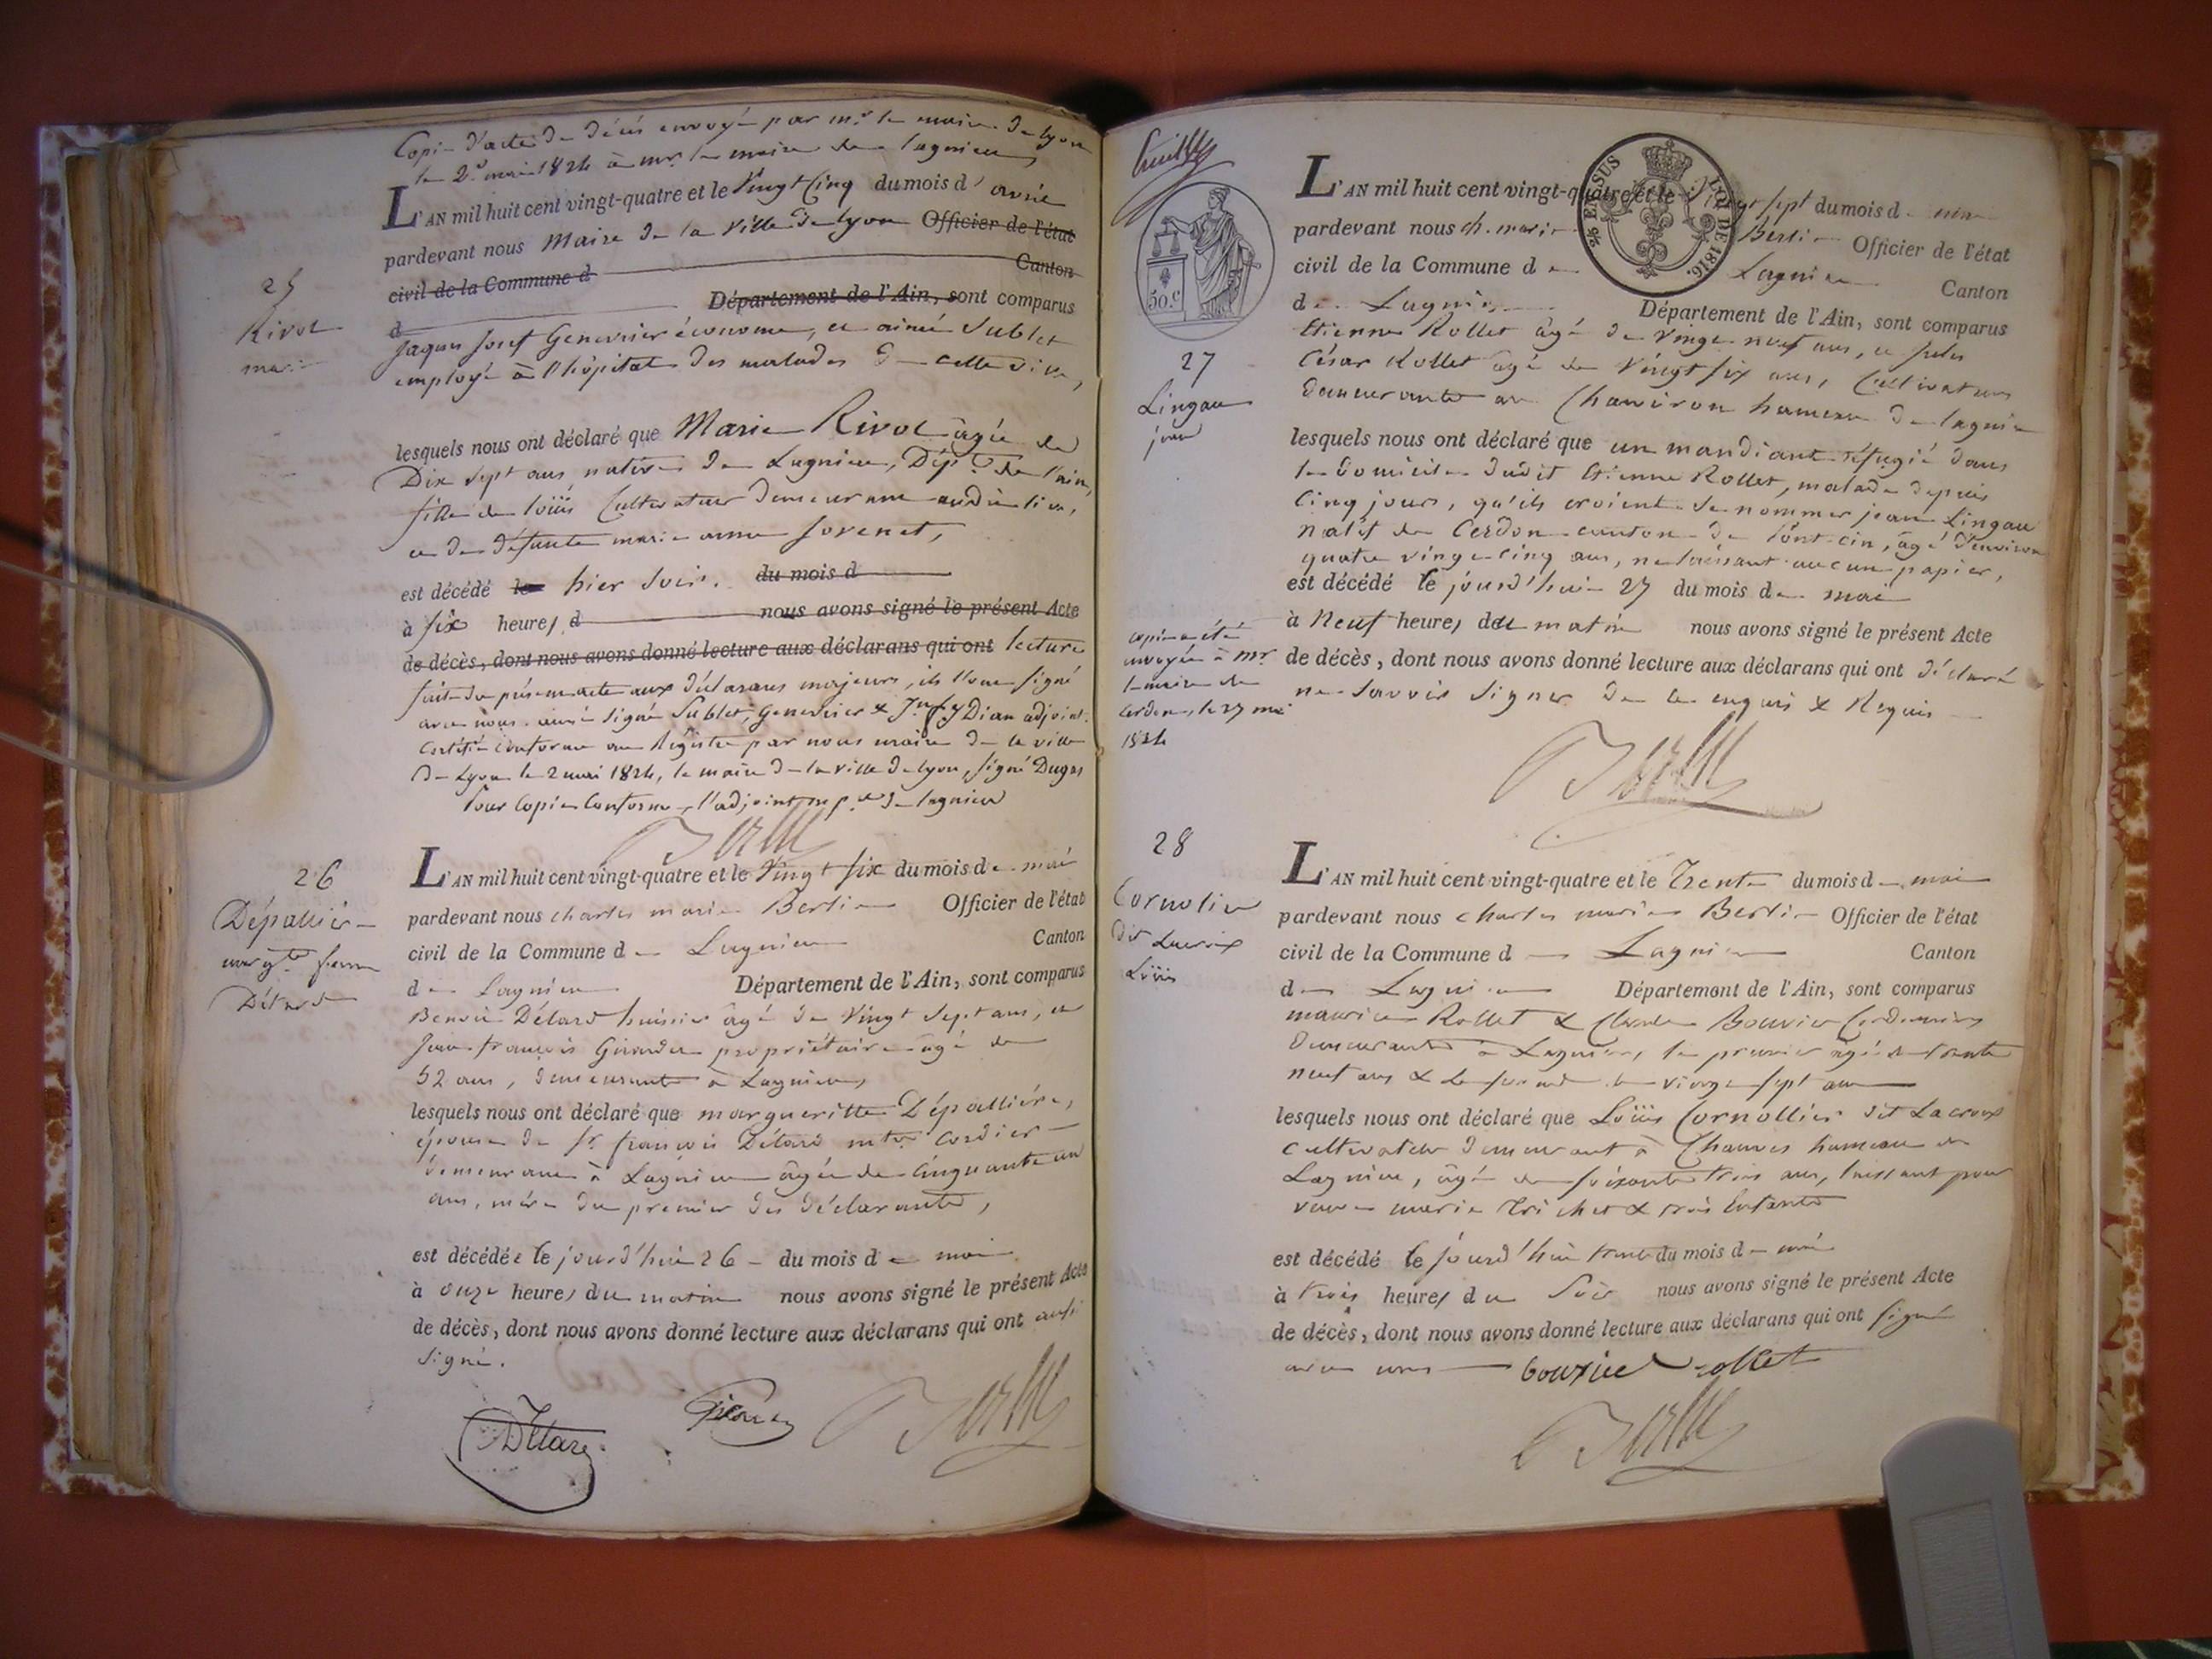 Copie d'acte de décés envoyé par mr. le maire de lyon
le 2 mai 1824 à mr. le maire de lagnieu
L'AN mil huit cent vingt-quatre et le Vingt Cinq du mois d'avril
pardevant nous Maire de la Ville de lyon Officier de l'état
civil de la Commune d Canton
d Département de l'Ain, sont comparus
Jaques Josef Genevrier économe, et aimé Sublet
employé à l'hôpital des malades de cette ville,
25
Rivol
marie
lesquels nous ont déclaré que Marie Rivol âgée de
Dix Sept ans, native de Lagnieu, Dépt. de l'ain,
fille de loüis Cultivateur demeurant audit lieu,
et de défunte marie anne Jovenet,
est décédé le hier soir. du mois d
à six heures d nous avons signé le présent Acte
de décès, dont nous avons donné lecture aux déclarans qui ont lecture
faite du présent acte aux déclarans majeurs, ils l'ont signé
avec nous. ainsi signé Sublet, Genevrier & Dian adjoint.
Certifié conforme au Régistre par nous maire de la ville
de Lyon le 2 mai 1824, le maire de la ville de lyon, signé Dugas
Pour Copie Conforme, l'adjoint de lagnieu
26
Dépallière
margte. femme
Détard
L'AN mil huit cent vingt-quatre et le Vingt six du mois de mai
pardevant nous charles marie Berlie Officier de l'état
civil de la Commune de Lagnieu Canton
de Lagnieu Département de l'Ain, sont comparus
Benoit Détard huissier âgé de Vingt Sept ans, et
Jean françois Girardet propriétaire âgé de
52 ans, demeurants à Lagnieu,
lesquels nous ont déclaré que margueritte Dépallière,
épouse de Sr. françois Détard cordier
demeurant à Lagnieu âgée de Cinquante un
ans, mère du premier des déclarants,
est décédée le jourd'hui 26 du mois de mai
à onze heures du matin nous avons signé le présent Acte
de décès, dont nous avons donné lecture aux déclarans qui ont aussi
signé.
Détard
L'AN mil huit cent vingt-quatre et le Vingt sept du mois de mai
pardevant nous ch. marie Berlie Officier de l'état
civil de la Commune de Lagnieu Canton
de Lagnieu Département de l'Ain, sont comparus
25% EN SUS
LOI DE 1816.
50.c
Etienne Rollet âgé de vingt neuf ans, et
César Rollet âgé de Vingt six ans, Cultivateurs
demeurants au Chanviron hameau de lagnieu
27
Lingau
jean
lesquels nous ont déclaré que un mandiant réfugié dans
le domicile dudit Etienne Rollet, malade depuis
Cinq jours, qu'ils croient se nommer jean Lingau
natif de Cerdon canton de Pont-cin, âgé d'environ
quatre vingt-cinq ans, ne laissant aucun papier,
est décédé le jourd'hui 27 du mois de mai
à Neuf heures du matin nous avons signé le présent Acte
de décès, dont nous avons donné lecture aux déclarans qui ont déclaré
ne savoir signer de ce enquis & Requis
copie a été
envoyée à Mr.
le maire de
Cerdon, le 27 mai
1824
28
Cornolier
dit Lacroix
Loüis
L'AN mil huit cent vingt-quatre et le Trente du mois de mai
pardevant nous charles marie Berlie Officier de l'état
civil de la Commune d Lagnieu Canton
de Lagnieu Département de l'Ain, sont comparus
maurice Rollet & Claude Bouvier Cordonniers
demeurants à Lagnieu, le premier âgé de trente
neuf ans & le second de vingt sept ans
lesquels nous ont déclaré que Loüis Cornollier dit Lacroix
cultivateur demeurant à Chauves hameau de
Lagnieu, âgé de soixante trois ans, laissant pour
veuve marie Trichet & trois Enfants
est décédé le jourd'hui trente du mois de mai
à trois heures du Soir nous avons signé le présent Acte
de décès, dont nous avons donné lecture aux déclarans qui ont signé
avec nous bouvier Rollet